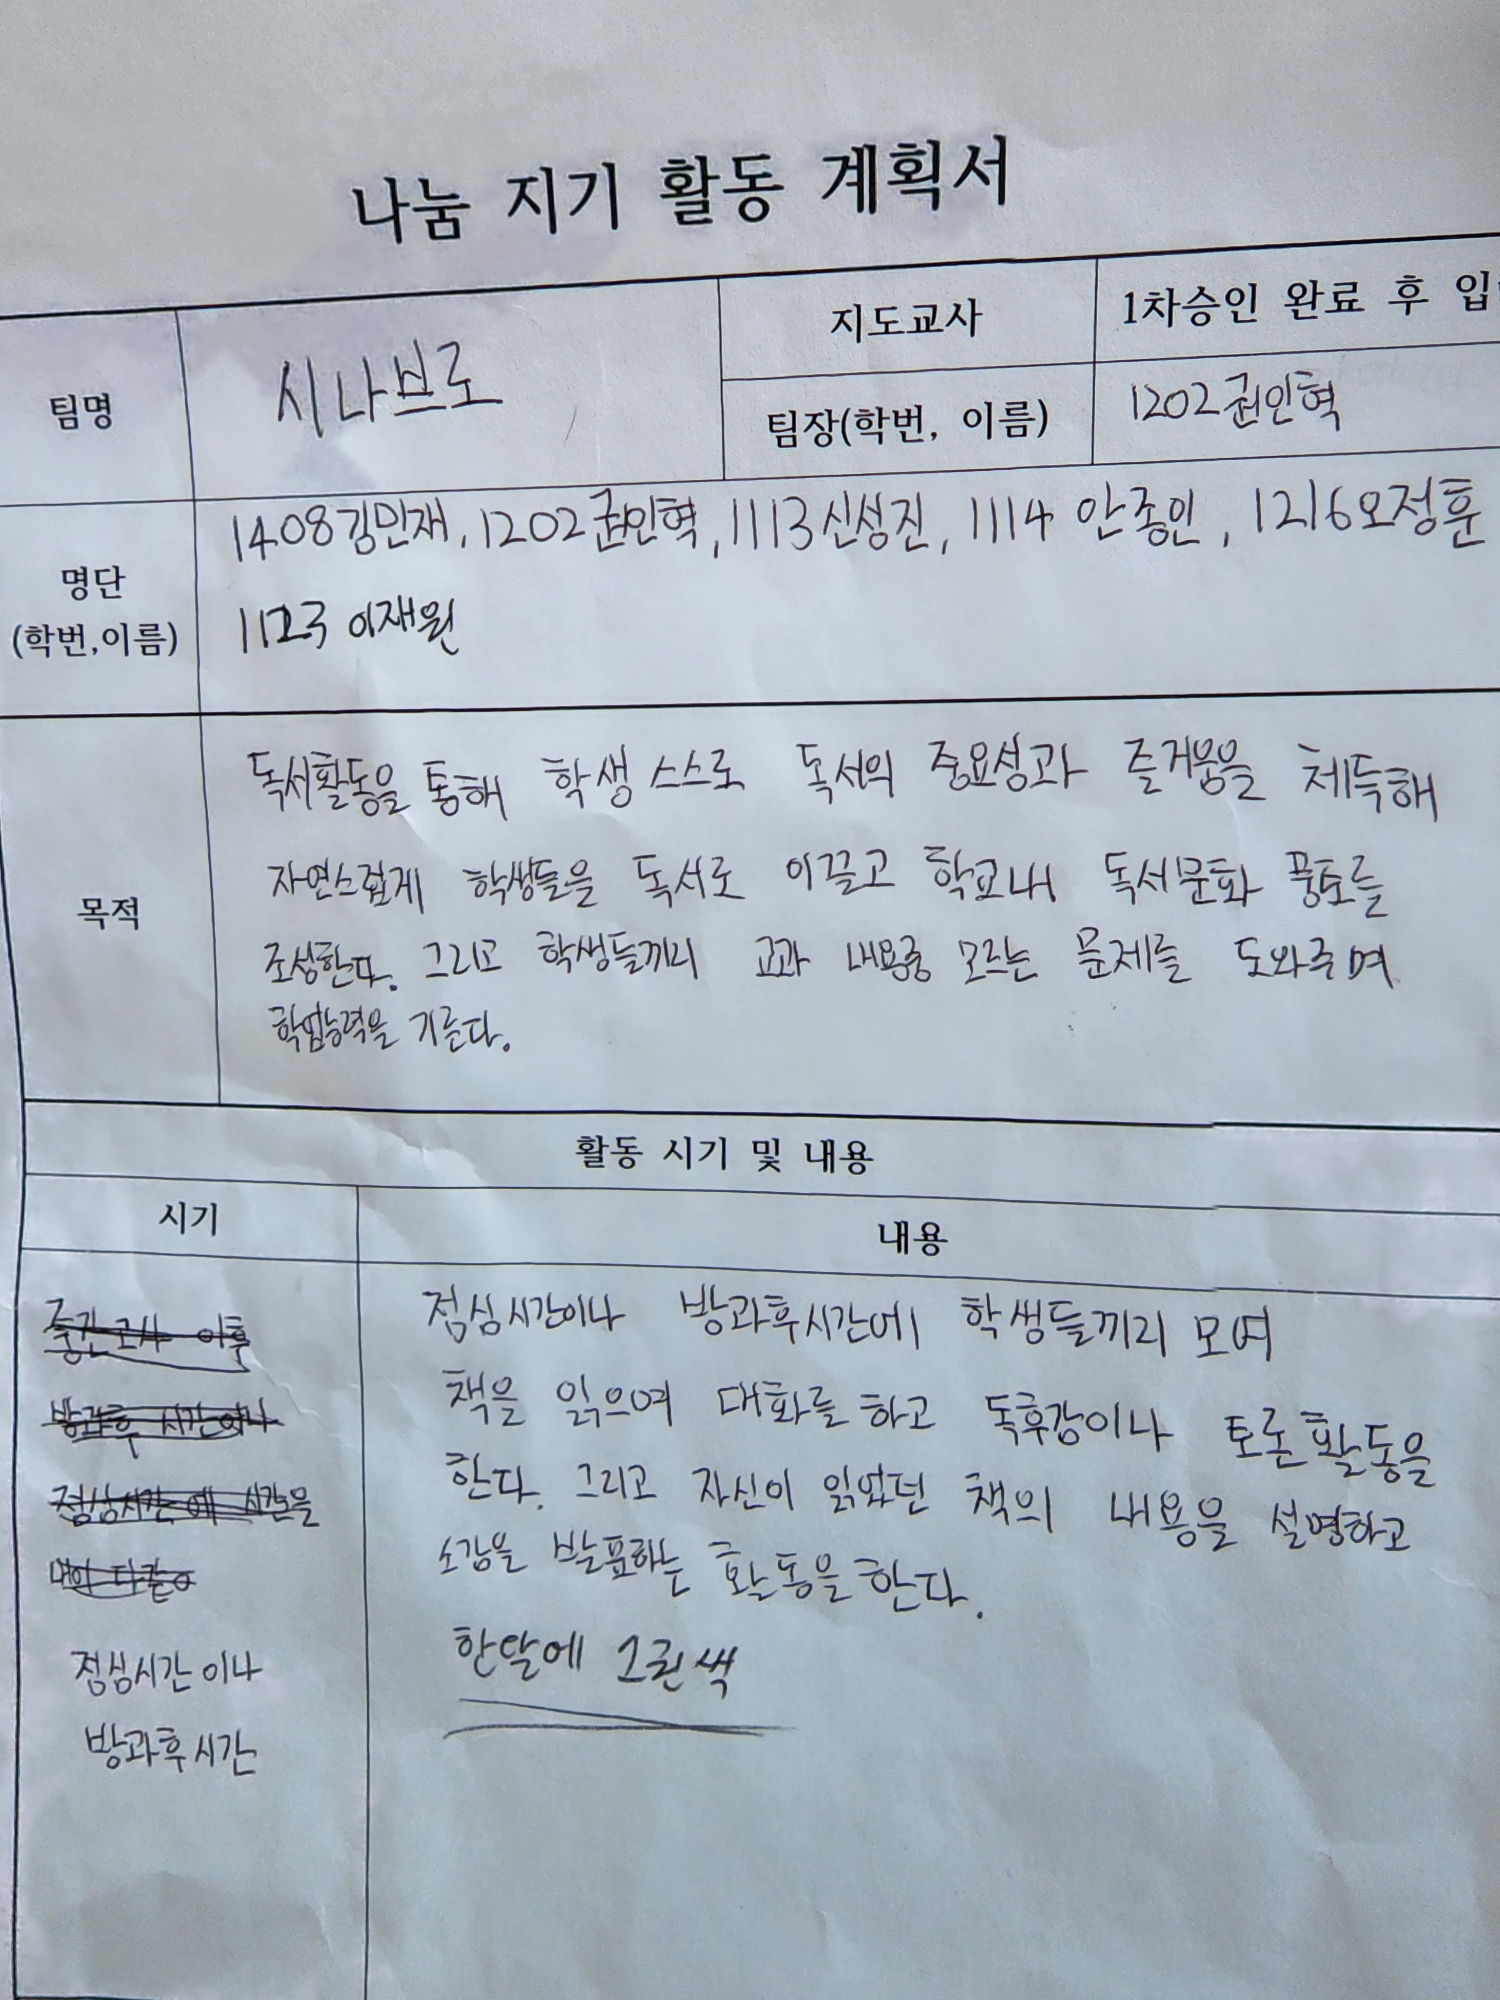 나눔 지기 활동 계획서
팀명
시나브로
지도교사
1차승인 완료 후
팀장(학번, 이름)
1202 권인혁
명단
(학번,이름)
1408김민재, 1202권인혁, 1113신성진, 1114 안종인, 1216오정훈
1123 이재원
목적
독서활동을 통해 학생 스스로 독서의 중요성과 즐거움을 체득해
자연스럽게 학생들을 독서로 이끌고 학교내 독서문화 풍토를
조성한다. 그리고 학생들끼리 교과 내용중 모르는 문제를 도와주며
학업능력을 기른다.
활동 시기 및 내용
시기
내용
중간고사 이후
방과후 시간이나
점심시간에 시간을
점심시간이나
방과후시간
점심시간이나 방과후시간에 학생들끼리 모여
책을 읽으며 대화를 하고 독후감이나 토론활동을
한다. 그리고 자신이 읽었던 책의 내용을 설명하고
소감을 발표하는 활동을한다.
한달에 1권씩